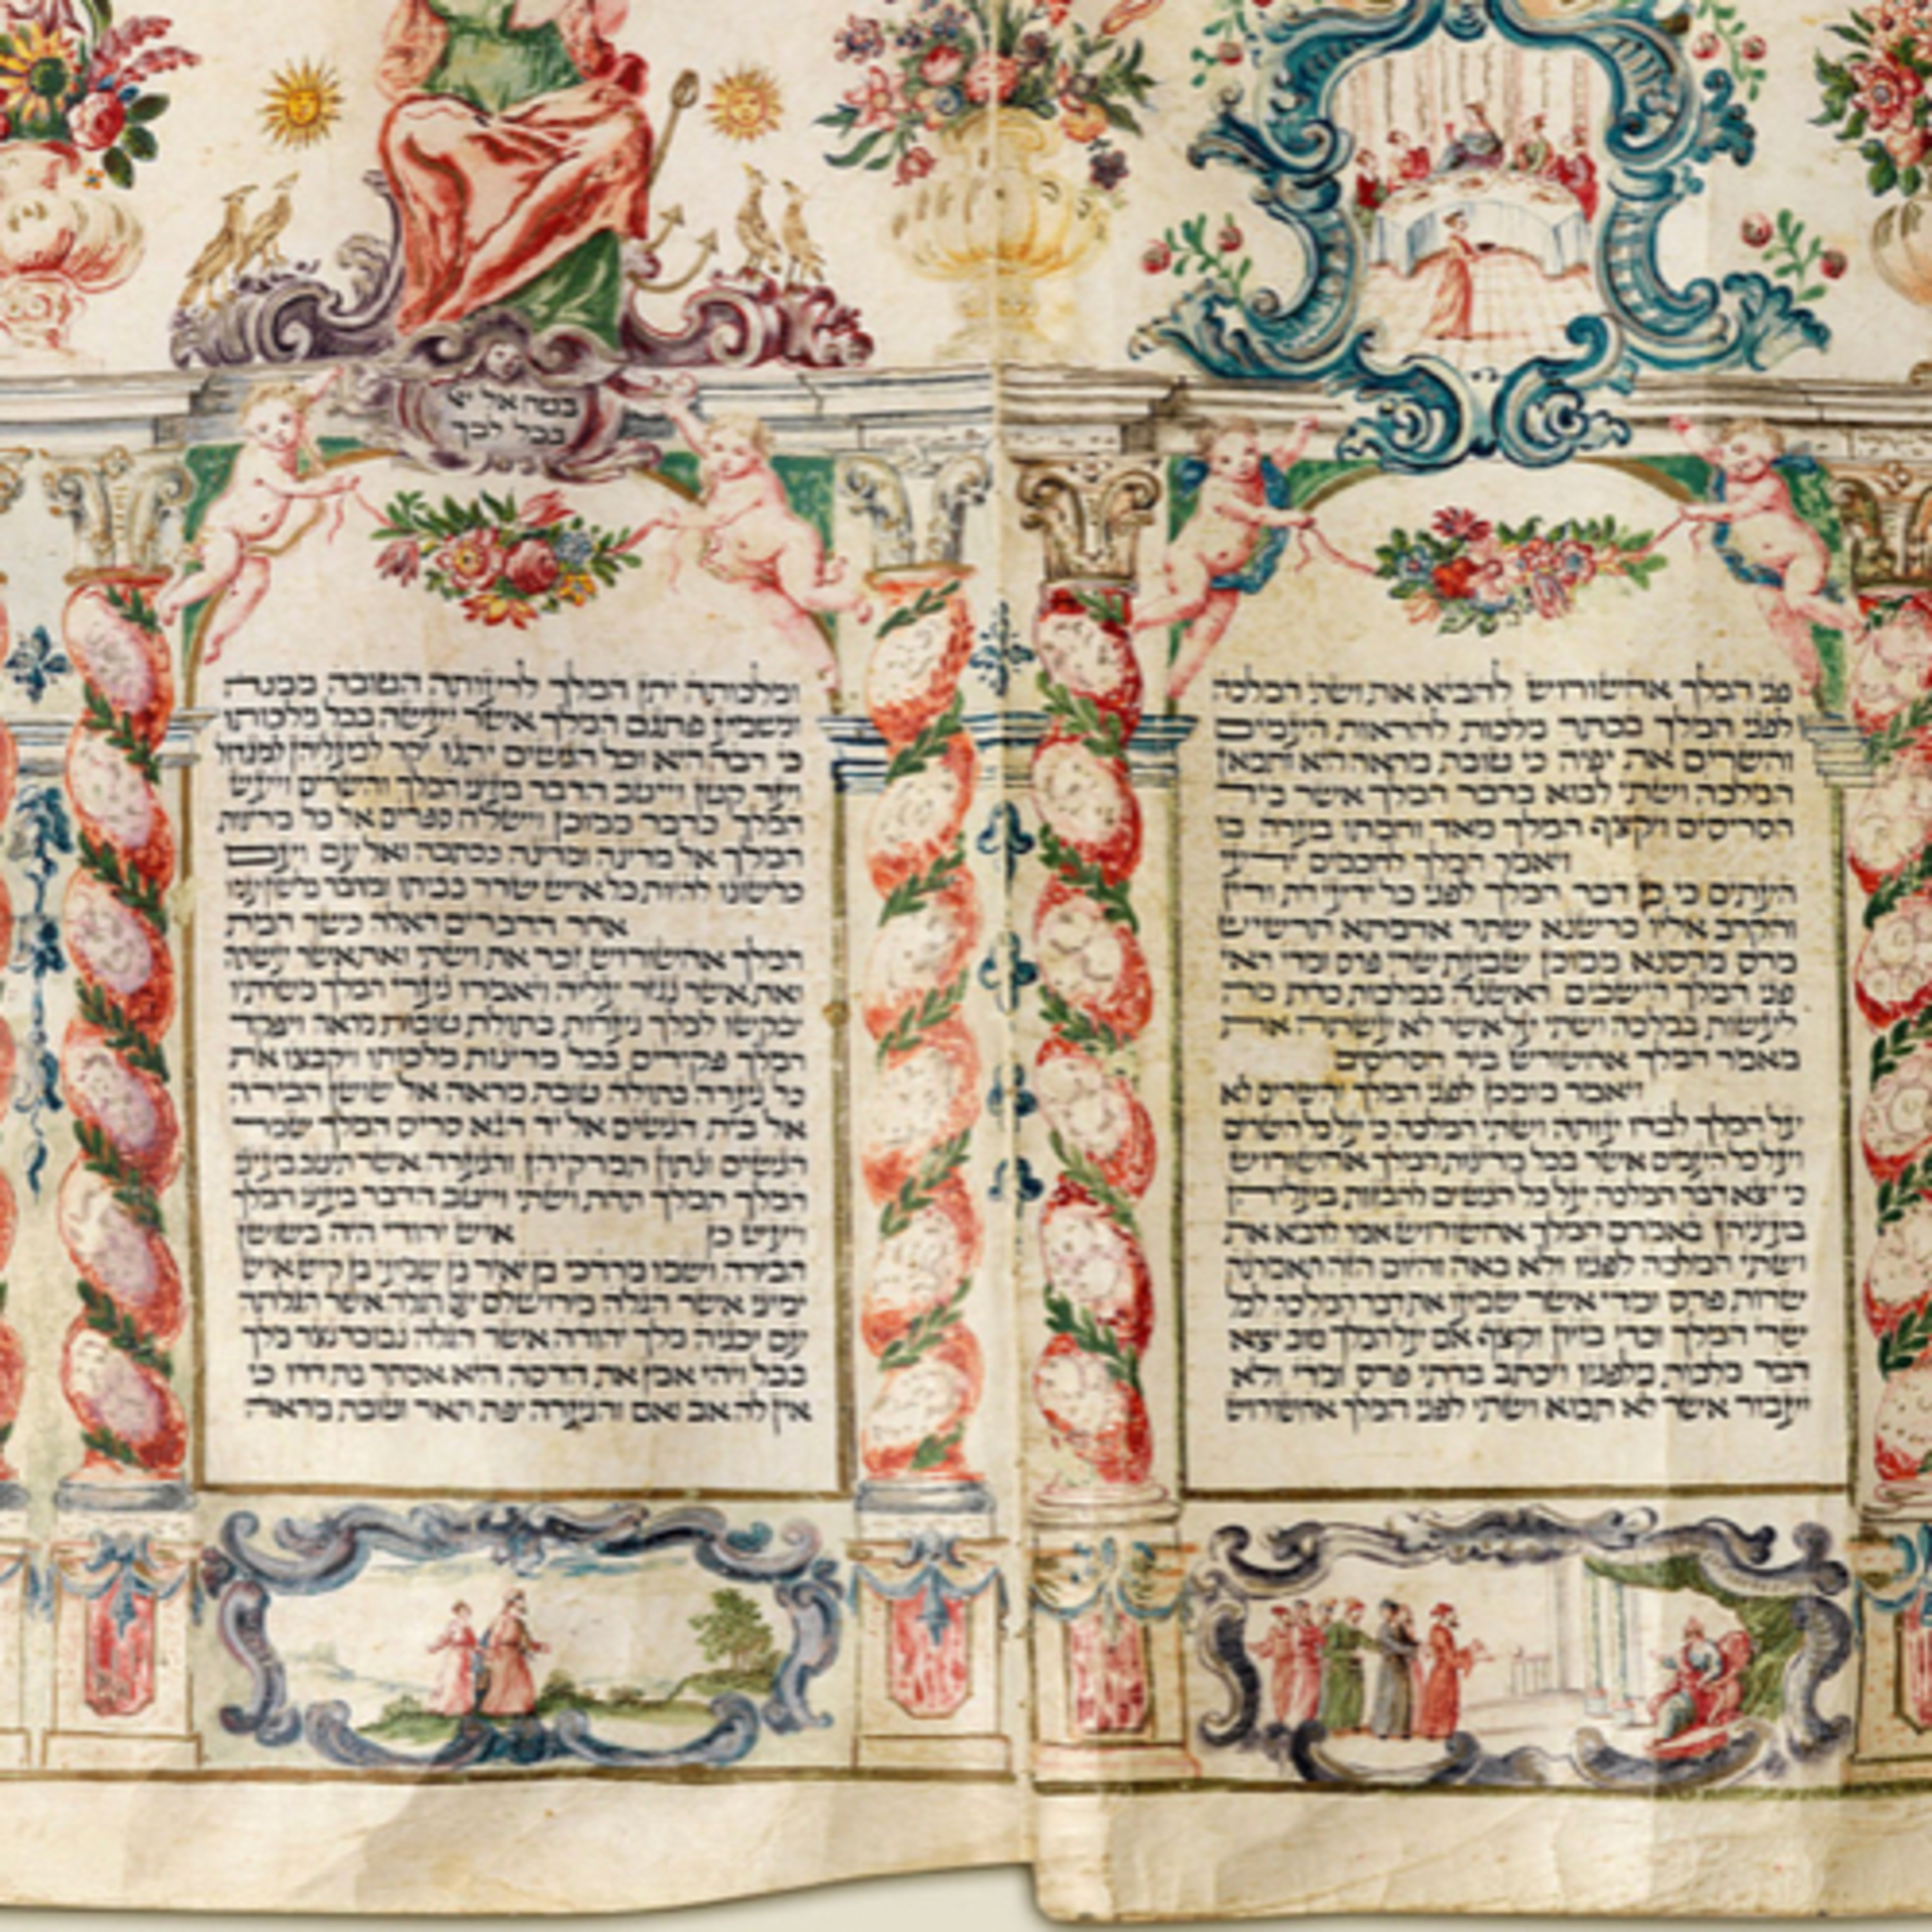 בטח אל יי
בכל לבך
פני המלך אחשורוש להביא את ושתי המלכה
לפני המלך בכתר מלכות להראות העמים
והשרים את יפיה כי טובת מראה היא ותמאן
המלכה ושתי לבוא בדבר המלך אשר ביד
הסריסים ויקצף המלך מאד וחמתו בערה בו
ויאמר המלך לחכמים ידעי
העתים כי כן דבר המלך לפני כל ידעי דת ודין
והקרב אליו כרשנא שתר אדמתא תרשיש
מרס מרסנא ממוכן שבעת שרי פרס ומדי ראי
פני המלך הישבים ראשנה במלכות כדת מה
לעשות במלכה ושתי על אשר לא עשתה את
מאמר המלך אחשורוש ביד הסריסים
ויאמר מומכן לפני המלך והשרים לא
על המלך לבדו עותה ושתי המלכה כי על כל השרים
ועל כל העמים אשר בכל מדינות המלך אחשורוש
כי יצא דבר המלכה על כל הנשים להבזות בעליהן
בעיניהן באמרם המלך אחשורוש אמר להביא את
ושתי המלכה לפניו ולא באה והיום הזה תאמרנה
שרות פרס ומדי אשר שמעו את דבר המלכה לכל
שרי המלך וכדי בזיון וקצף אם על המלך טוב יצא
דבר מלכות מלפניו ויכתב בדתי פרס ומדי ולא
יעבור אשר לא תבוא ושתי לפני המלך אחשורוש
ומלכותה יתן המלך לרעותה הטובה ממנה
ונשמע פתגם המלך אשר יעשה בכל מלכותו
כי רבה היא וכל הנשים יתנו יקר לבעליהן למגדול
ועד קטן וייטב הדבר בעיני המלך והשרים ויעש
המלך כדבר ממוכן וישלח ספרים אל כל מדינות
המלך אל מדינה ומדינה ככתבה ואל עם ועם
כלשונו להיות כל איש שרר בביתו ומדבר כלשון עמו
אחר הדברים האלה כשך חמת
המלך אחשורוש זכר את ושתי ואת אשר עשתה
ואת אשר נגזר עליה ויאמרו נערי המלך משרתיו
יבקשו למלך נערות בתולות טובות מראה ויפקד
המלך פקידים בכל מדינות מלכותו ויקבצו את
כל נערה בתולה טובת מראה אל שושן הבירה
אל בית הנשים אל יד הגא סריס המלך שמר
הנשים ונתון תמרקיהן והנערה אשר תיטב בעיני
המלך תמלך תחת ושתי וייטב הדבר בעיני המלך
ויעש כן איש יהודי היה בשושן
הבירה ושמו מרדכי בן יאיר בן שמעי בן קיש איש
ימיני אשר הגלה מירושלים עם הגלה אשר הגלתה
עם יכניה מלך יהודה אשר הגלה נבוכדנצר מלך
בבל ויהי אמן את הדסה היא אסתר בת דדו כי
אין לה אב ואם והנערה יפת תאר וטובת מראה